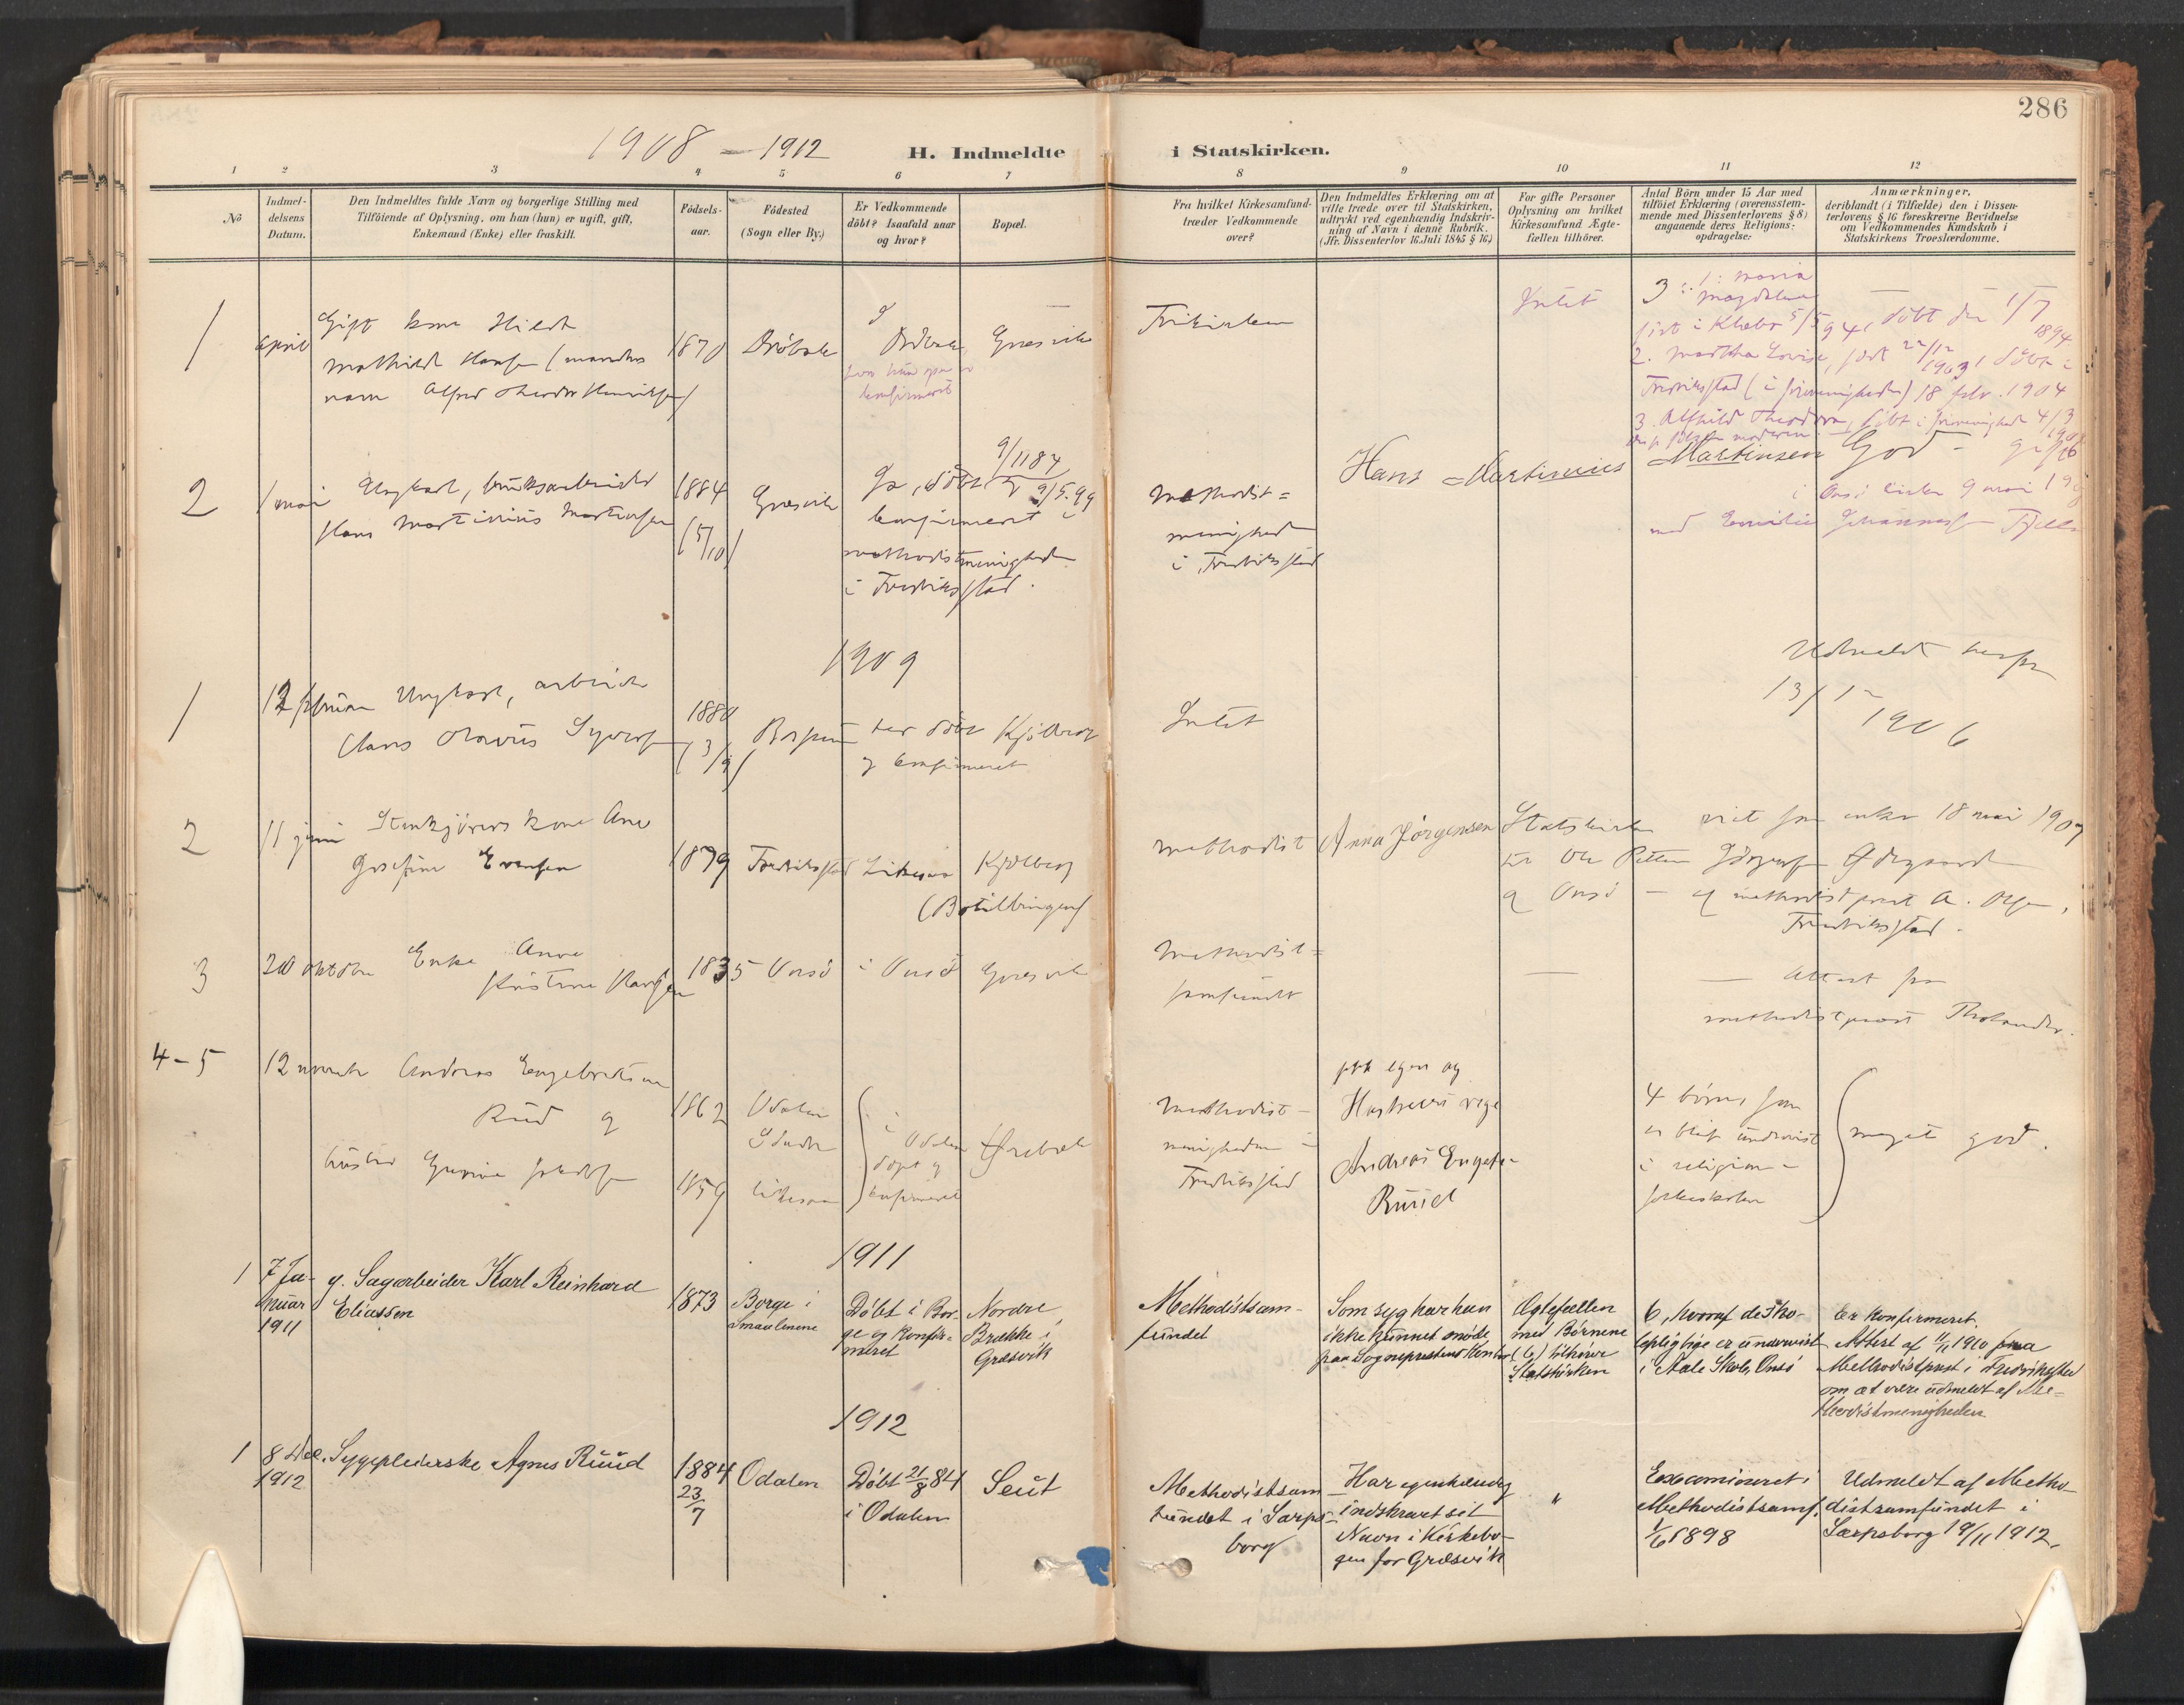 286
1908 - 1912
H. Indmeldte i Statskirken.
1 2 3 4 5 6 7 8 9 10 11 12
No
Indmel-
delsens
Datum.
Den Indmeldtes fulde Navn og borgerlige Stilling med
Tilföiende af Oplysning, om han (hun) er ugift, gift,
Enkemand (Enke) eller fraskilt.
Födsels-
aar.
Födested
(Sogn eller By.)
Er Vedkommende
döbt? Isaafald naar
og hvor?
Bopæl.
Fra hvilket Kirkesamfund
træder Vedkommende
over?
Den Indmeldtes Erklæring om at
ville træde over til Statskirken,
udtrykt ved egenhændig Indskriv-
ning af Navn i denne Rubrik.
(Jfr. Dissenterlov 16 Juli 1845 § 16)
For gifte Personer
Oplysning om hvilket
Kirkesamfund Ægte-
fællen tilhörer.
Antal Börn under 15 Aar med
tilföiet Erklæring (overensstem-
mende med Dissenterlovens § 8)
angaaende deres Religions-
opdragelse.
Anmærkninger,
deriblandt (i Tilfælde) den i Dissen-
terlovens § 16 foreskrevne Bevidnelse
om Vedkommendes Kundskab i
Statskirkens Troeslærdomme.
1
april
Gift kone
Mathilde Hansen (mandens
navn Alfred Theodor Henriksen)
1870
Dröbak
Dröbak
konfirmeret
Græsvik
Frikirken
Intet
3 : 1: Maria
Magdalena
5/5 94, döbt den 1/7
1894
2. Martha Lovise, född 22/12
1903, döbt i
Fredriksstad (i frimenigheden) 18 febr. 1904
3. Alfhild Theodora, döbt i frimenighed 4/3
2
1 mai
Ungkarl, bruksarbeider
Hans Martinius Martinsen
1884
(5/10)
Græsvik
Ja, döbt 9/11 84
konfirmeret 9/5.99 i
methodistmenigheden
i Fredriksstad.
Methodist=
menighed
i Fredriksstad
Hans Martinius Martinsen
God - gift
i Onsö kirke 9 mai
med Emilie Johannessen
1909
1
12 februar
Ungkarl, arbeider
Claus Olavus Syversen
1880
(3/9)
her döbt
og konfirmeret
Kjölberg
Intet
Udmeldt herfra
13/12
1906
2
11 juni
Stenkjörers kone Ane
Josefine Evensen
1879
Fredriksstad
Likesaa
Kjölberg
Methodist
Anna Jörgensen
Statskirken
viet som enke 18 mai 1907
til Ole Petter Jörgensen
af Onsö - af methodistprest A. Olsen,
Fredriksstad.
3
20 oktober
Enke Anne
Kristine Hansen
1835
Onsö
i Onsö
Græsvik
Methodist=
samfundet
—
— Attest fra
methodistprest Tholander.
4-5
12 november
Andreas Engebretsen
Ruud og
hustru
1862
Odalen
1859
likesaa
i Odalen
döpt og
konfirmeret
Methodist-
menigheden i
Fredriksstad
paa egen og
Hustrues vegne
Andreas Engebr.
Ruud
4 börn, som
er blit undervist
i religion i
folkeskolen
meget god.
1911
1
7 Ja-
nuar
1911
g. Sagarbeider Karl Reinhard
Eliassen
1873
Borge i
Smaalenene
Döbt i Bor-
ge og Konfir-
meret
Nordre
Brække i
Græsvik
Methodistsam-
fundet
Som syg har han
ikke kunnet möde
paa Sogneprestens Kontor
Ægtefællen
med Börnene
(6) tilhörer
Statskirken
6, hvoraf de sko-
lepligtige er undervist
i Aale Skole, Onsö
Er konfirmeret.
Attest af 11/11 1910 fra
Methodistprest i Fredrikstad
om at være udmeldt af Me-
thodistmenigheden.
1912
1
8 Dec.
1912
Sygepleierske Agnes Ruud
1884
23/7
Odalen
Döbt 21/8 84
i Odalen
Seut
Methodistsam-
fundet i Sarps-
borg
Har egenhændig
indskrevet sit
Navn i Kirkebo-
gen for Græsvik
"
Examineret i
Methodistsamf.
1/6 1898
Udmeldt af Metho-
distsamfundet i
Sarpsborg 19/11 1912.